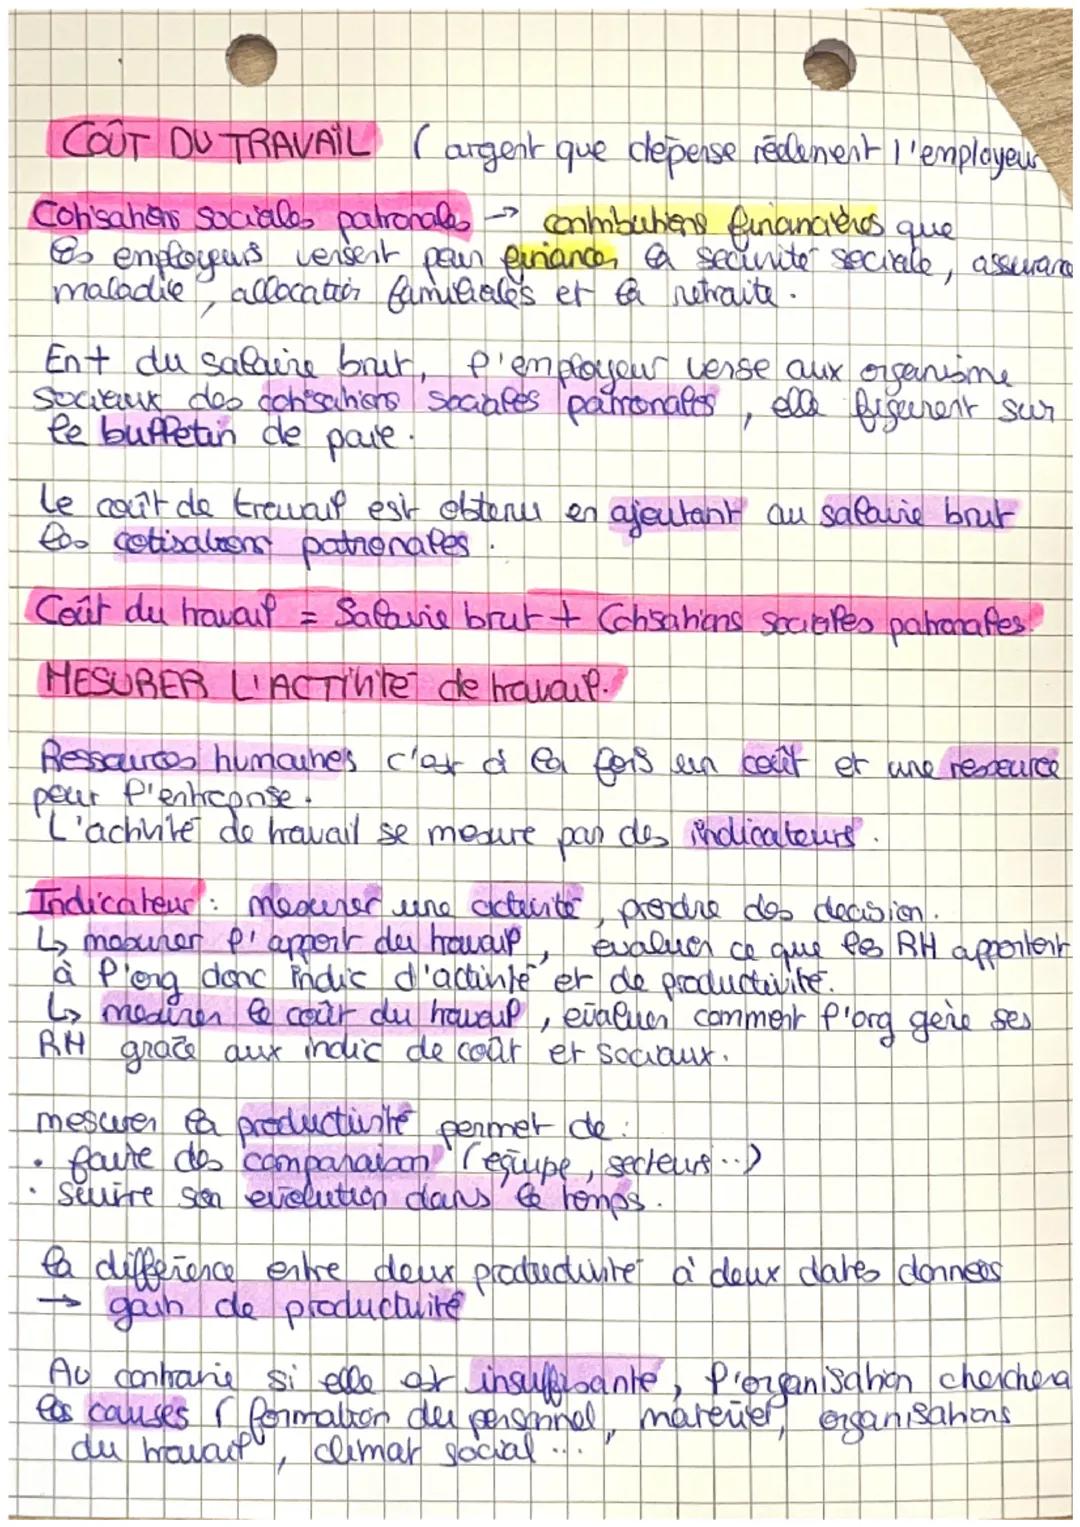 COÛT DU TRAVAIL ( argent que dépense réelement l'employeur
Cotisations sociales patronales → contributions financières que
les employeurs versent pour financer la sécurité sociale, assurance
maladie, allocation familiales et la retraite.
En + du salaire brut, l'employeur verse aux organisme
sociaux des cotisations sociales patronales, elle figurent sur
le bulletin de paie.
Le coût de travail est obtenu en ajoutant au salaire brut
les cotisations patronales.
Coût du travail = Salaire brut + Cotisations sociales patronales.
MESURER L'ACTIVITÉ de travail.
Ressources humaines c'est à la fois un coût et une ressource
pour l'entreprise.
L'activité de travail se mesure par des indicateurs.
Indicateur : mesurer une activité, prendre des décision.
↳ mesurer l'apport du travail, évaluer ce que les RH apportent
à l'org donc indic d'activité et de productivité.
↳ mesurer le coût du travail, évaluer comment l'org gère ses
RH grâce aux indic de coût et sociaux.
mesurer la productivité permet de :
• faire des comparaison (équipe, secteurs...)
• suivre son évolution dans le temps.
la différence entre deux productivité à deux dates données
→ gain de productivité
Au contraire si elle est insuffisante, l'organisation cherchera
les causes (formation du personnel, matériel, organisations
du travail, climat social ...